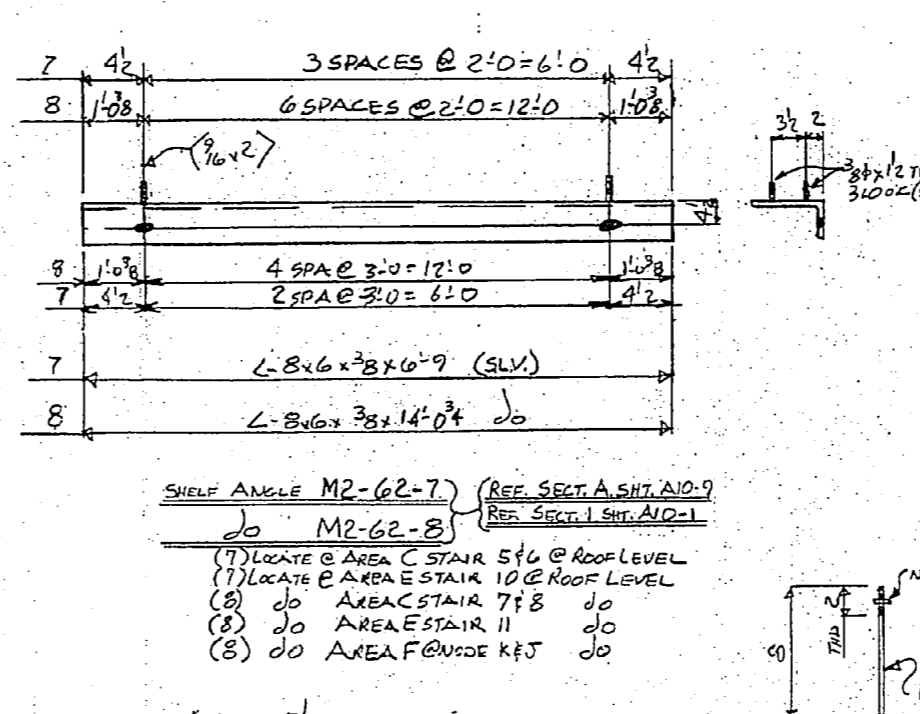 7 4½ 3 SPACES @ 2'-0 = 6'-0 4½
8 1'-0⅜ 6 SPACES @ 2'-0 = 12'-0 1'-0⅜
(9/16 x 2)
3½ 2
⅜ϕ x 1½
4½
8 1'-0⅜ 4 SPA @ 3'-0 = 12'-0 1'-0⅜
7 4½ 2 SPA @ 3'-0 = 6'-0 4½
7 L-8x6x⅜x6'-9 (SLV.)
8 L-8x6x⅜x14'-0¾ do
SHELF ANGLE M2-62-7 REF. SECT. A. SHT. A10-9
do M2-62-8 REF. SECT. 1 SHT. A10-1
(7) LOCATE @ AREA C STAIR 5&6 @ ROOF LEVEL
(7) LOCATE @ AREA E STAIR 10 @ ROOF LEVEL
(8) do AREA C STAIR 7&8 do
(8) do AREA E STAIR 11 do
(8) do AREA F @ NODE K&J do
8 2 THD